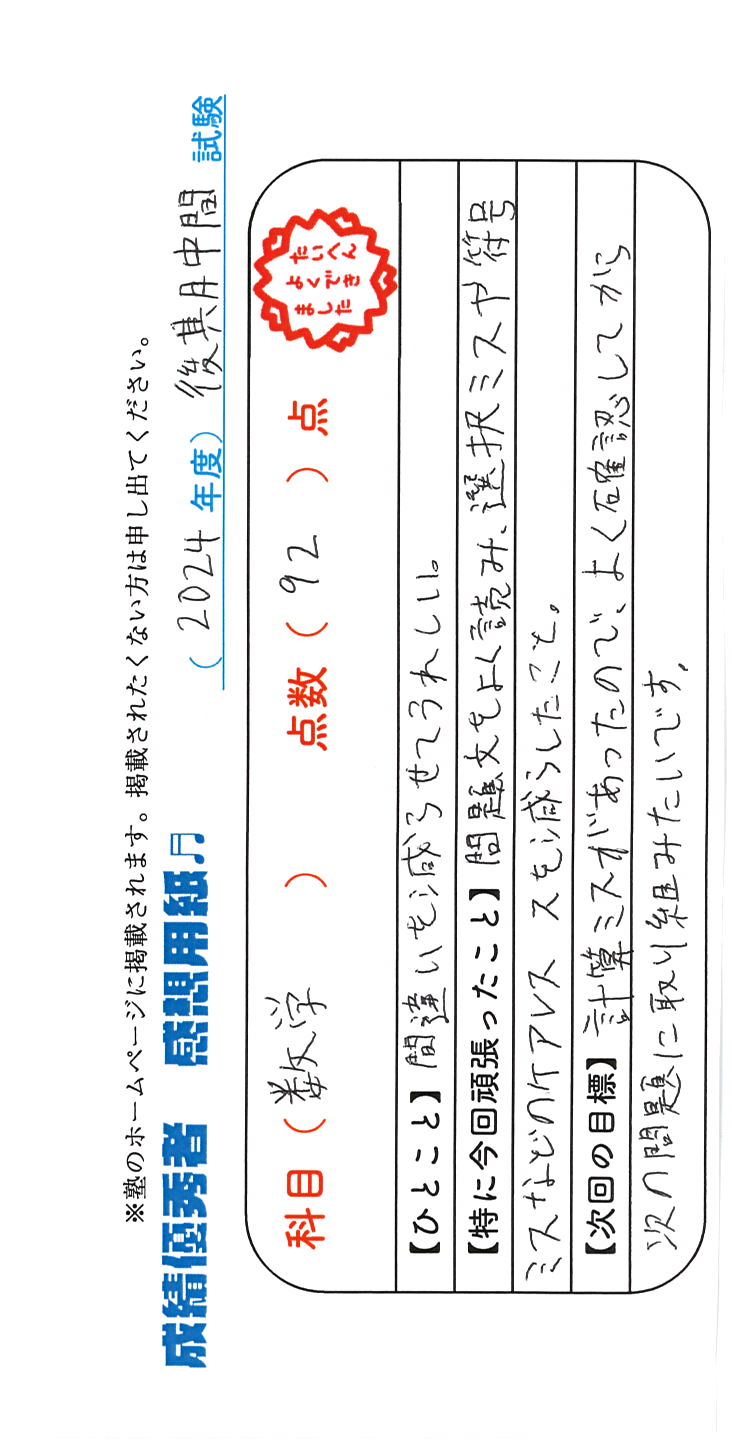 ※塾のホームページに掲載されます。掲載されたくない方は申し出てください。
成績優秀者 感想用紙♬
(2024年度) 後期中間 試験
科目(数学) 点数(92)点
たいへん
よくでき
ました
【ひとこと】間違いを減らせてうれしい。
【特に今回頑張ったこと】問題文をよく読み、選択ミスや符号
ミスなどのケアレススを減らしたこと。
【次回の目標】計算ミスがあったので、よく確認してから
次の問題に取り組みたいです。